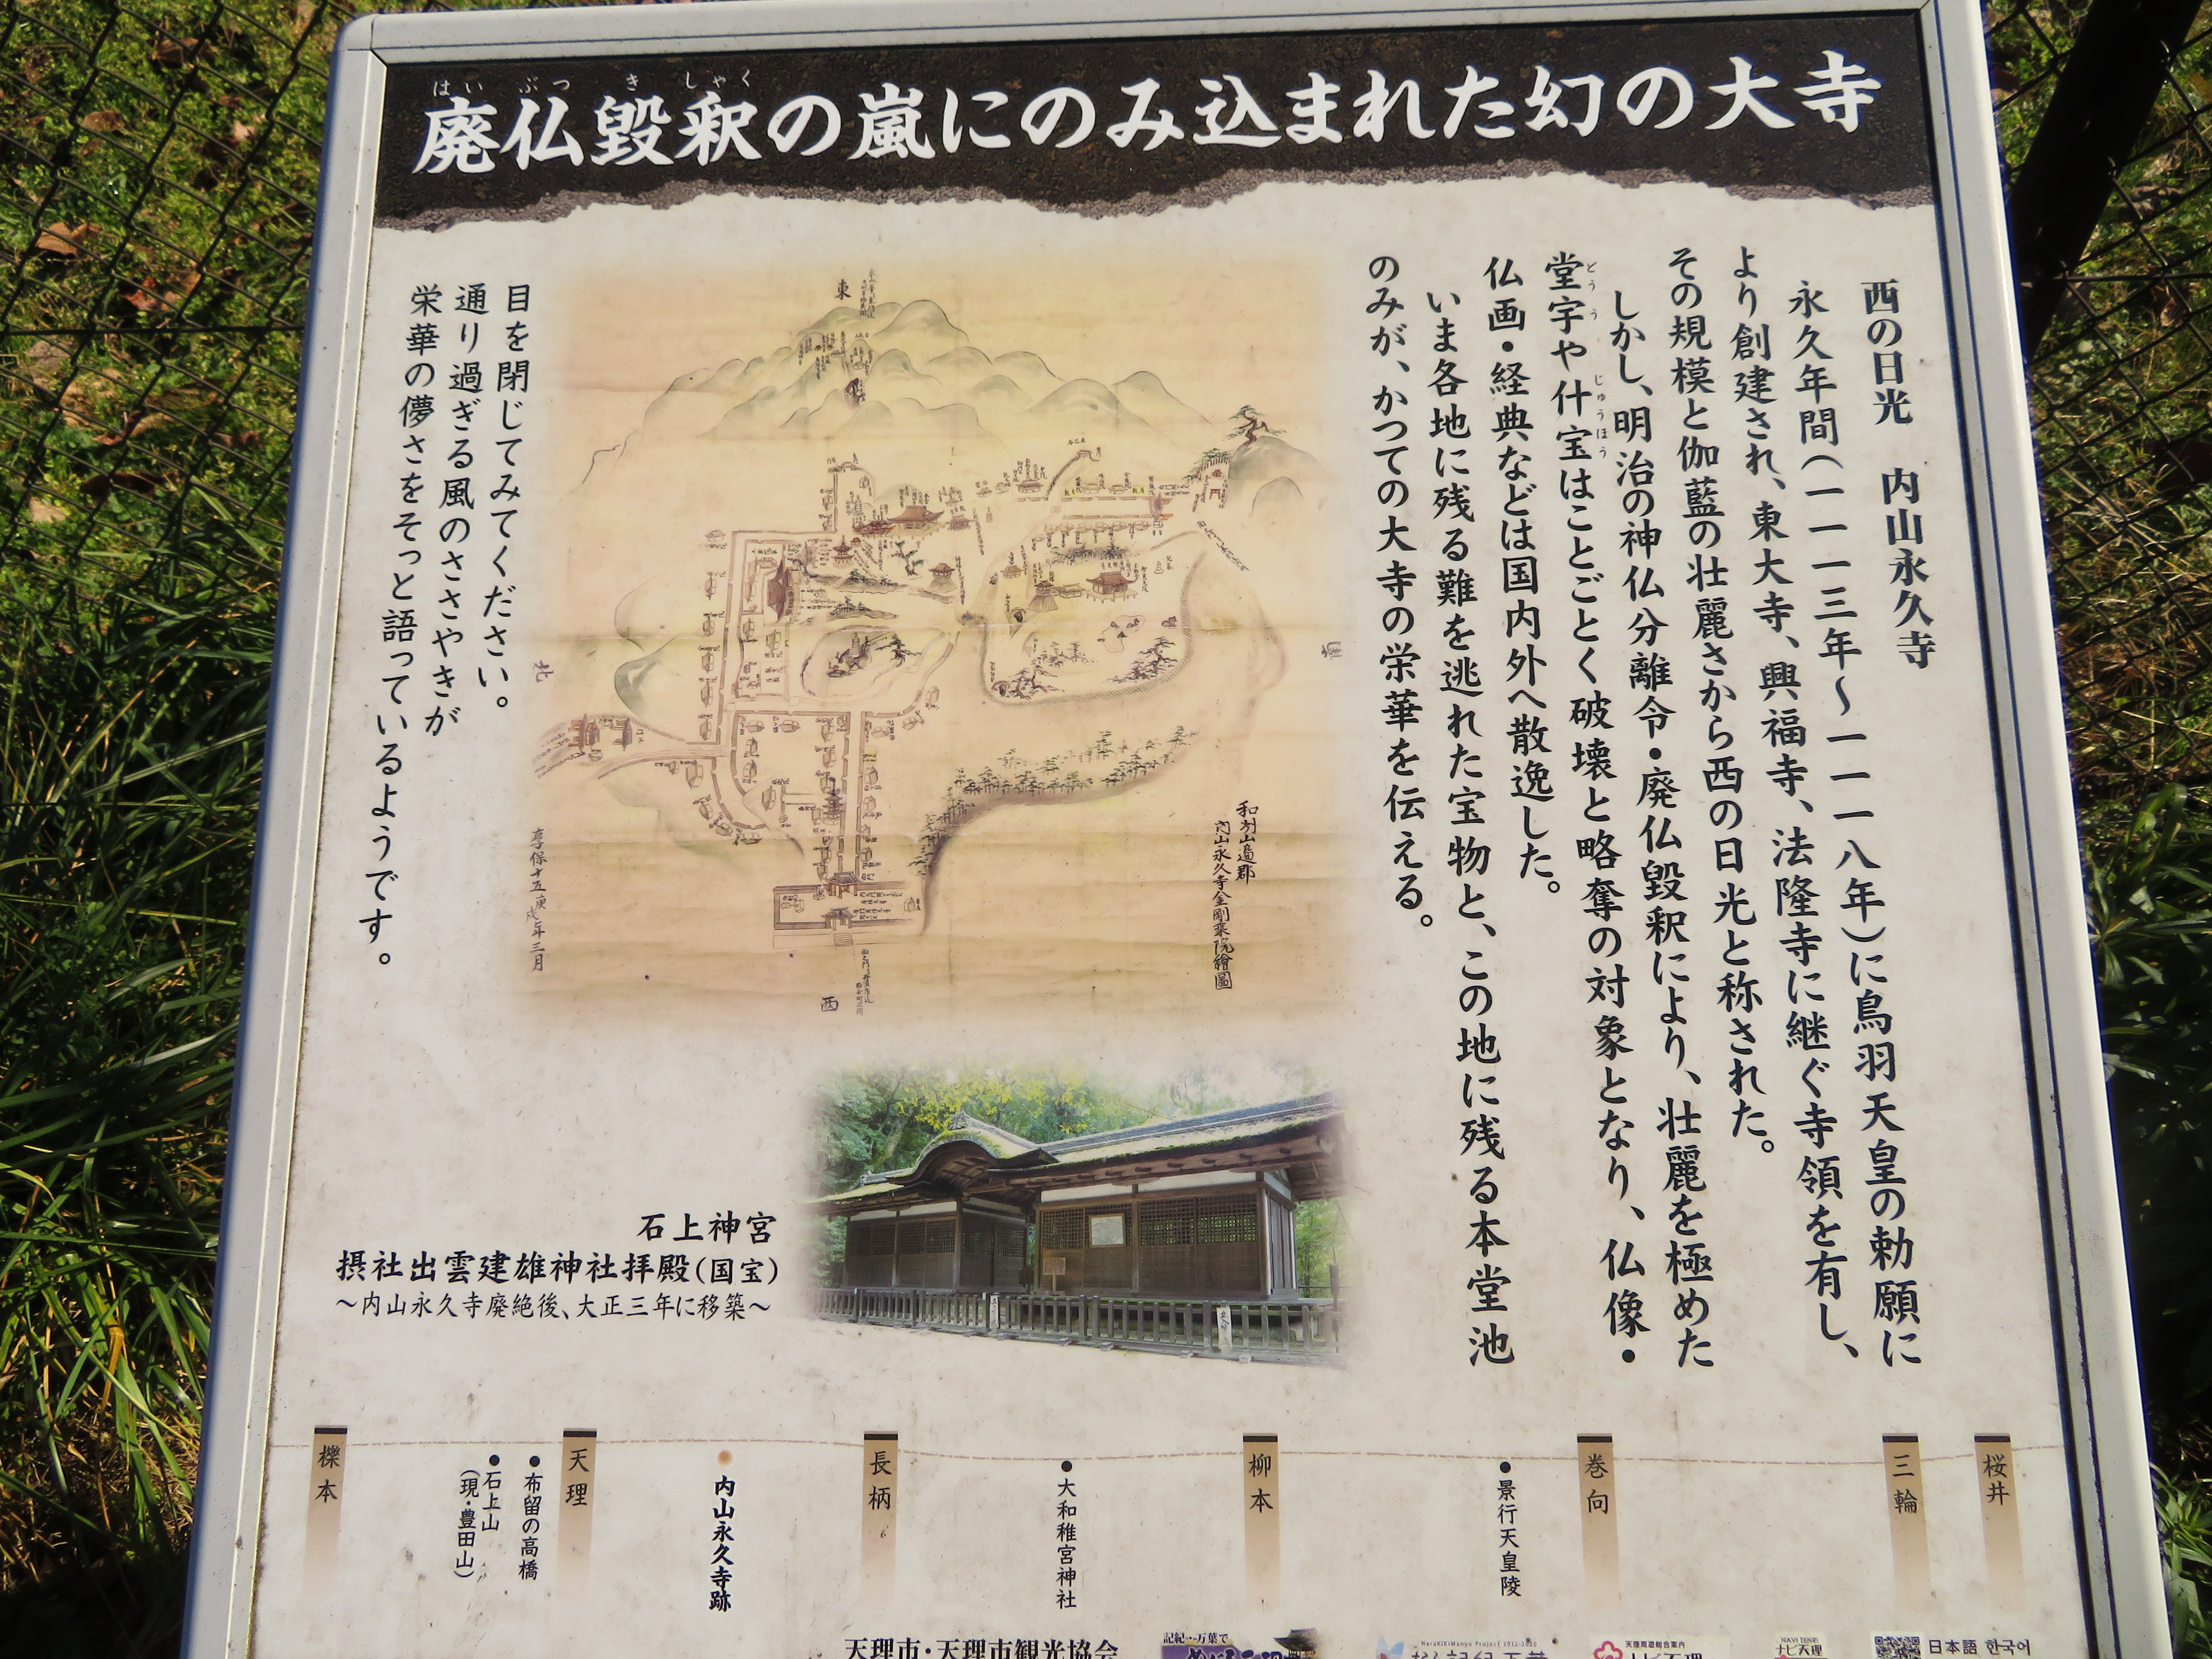 はいぶつきしゃく
廃仏毀釈の嵐にのみ込まれた幻の大寺
西の日光 内山永久寺
永久年間(一一一三年～一一一八年)に鳥羽天皇の勅願に
より創建され、東大寺、興福寺、法隆寺に継ぐ寺領を有し、
その規模と伽藍の壮麗さから西の日光と称された。
しかし、明治の神仏分離令・廃仏毀釈により、壮麗を極めた
どうう じゅうほう
堂宇や什宝はことごとく破壊と略奪の対象となり、仏像・
仏画・経典などは国内外へ散逸した。
いま各地に残る難を逃れた宝物と、この地に残る本堂池
のみが、かつての大寺の栄華を伝える。
東
南
北
西
和州山邉郡
内山永久寺金剛乗院繪圖
享保十五庚戌年三月
目を閉じてみてください。
通り過ぎる風のささやきが
栄華の儚さをそっと語っているようです。
石上神宮
摂社出雲建雄神社拝殿(国宝)
～内山永久寺廃絶後、大正三年に移築～
桜井
三輪
巻向
●景行天皇陵
柳本
●大和稚宮神社
長柄
内山永久寺跡
天理
●布留の高橋
●石上山
(現・豊田山)
櫟本
天理市・天理市観光協会
記紀・万葉で
NaraKiKiManyo Project 2012-2020
天理周遊総合案内
NAVI TENRI
ナビ天理
日本語 한국어